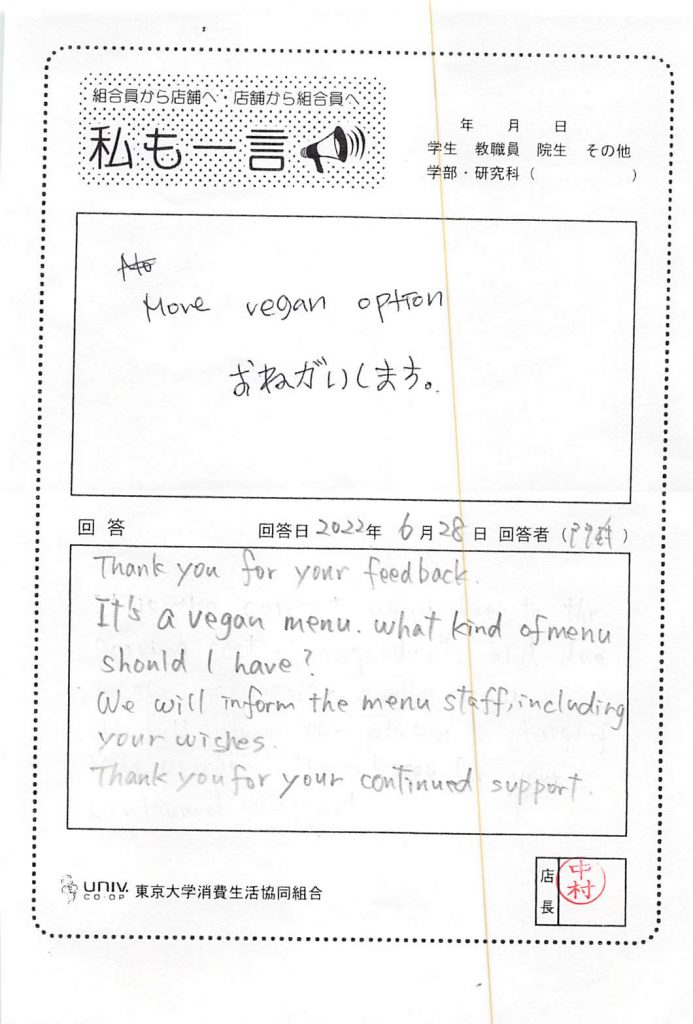 組合員から店舗へ・店舗から組合員へ
私も一言
年 月 日
学生 教職員 院生 その他
学部・研究科( )
More vegan option
おねがいします。
回答
回答日2022年 6月28日 回答者( )
Thank you for your feedback.
It's a vegan menu. what kind of menu
should I have?
We will inform the menu staff, including
your wishes.
Thank you for your continued support.
UNIV. CO-OP 東京大学消費生活協同組合
店長
中村